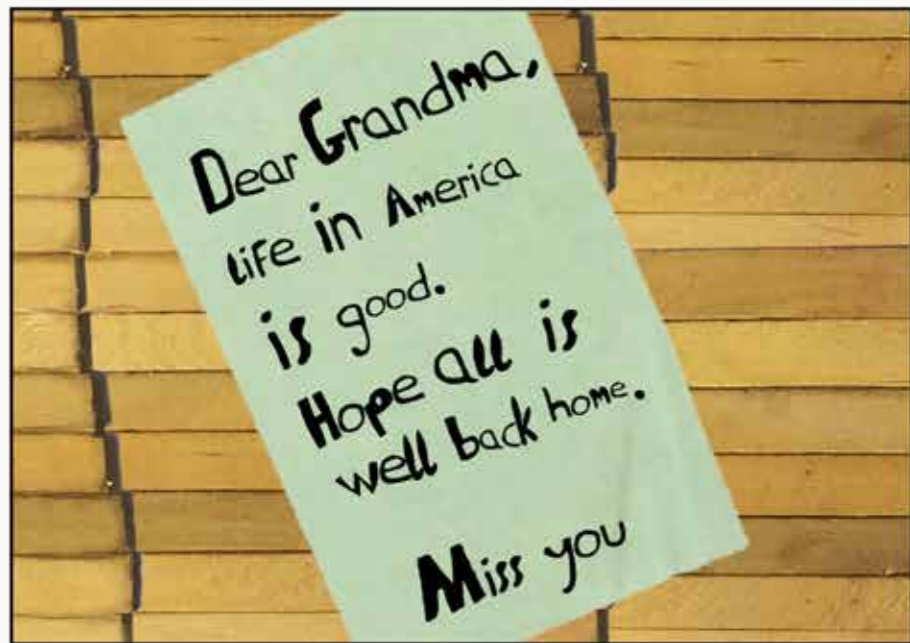 Dear Grandma,
life in America
is good.
Hope all is
well back home.
Miss you